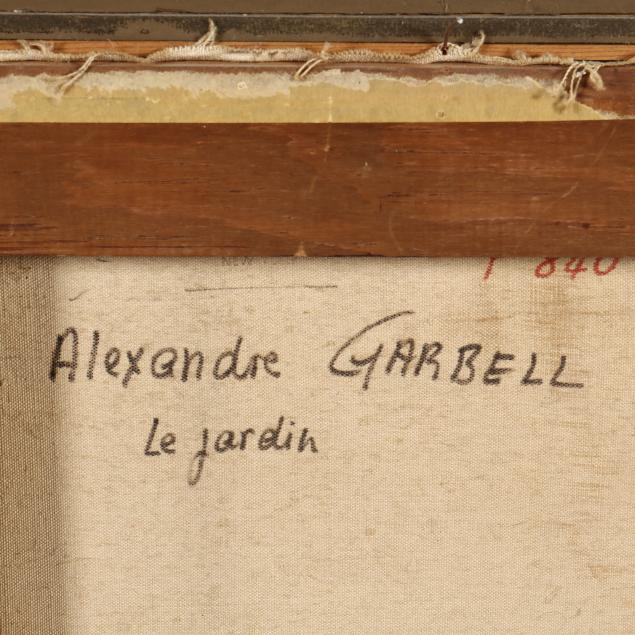 840
Alexandre GARBELL
Le jardin